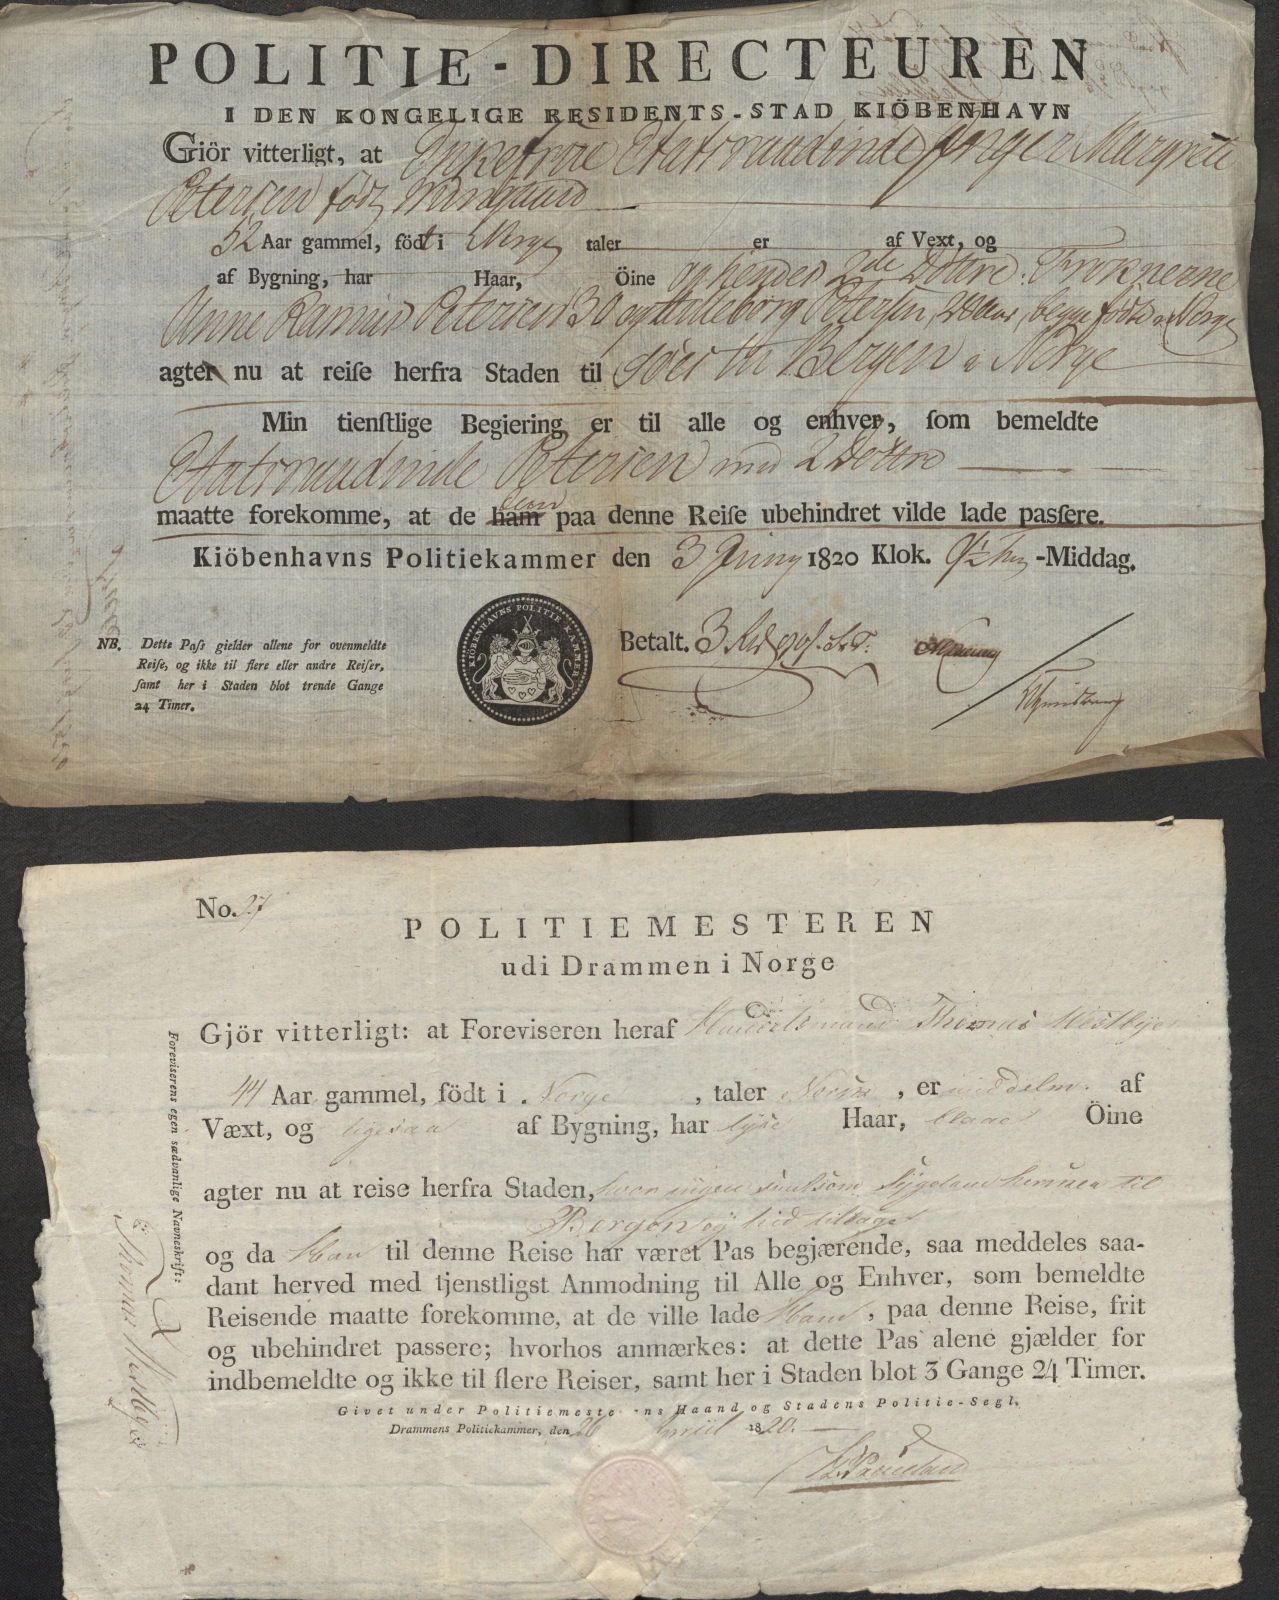 POLITIE-DIRECTEUREN
I DEN KONGELIGE RESIDENTS-STAD KIÖBENHAVN
Giör vitterligt, at Enkefrue Etatsraadinde Inger Margrete
Petersen född
52 Aar gammel, födt i Norge taler er af Vext, og
af Bygning, har Haar, Öine 2de Döttre: Fröknerne
Anne Ramus Petersen 30 og Petersen, 28 Aar, begge födte i Norge
agter nu at reiſe herfra Staden til Bergen i Norge
Min tienſtlige Begiering er til alle og enhver, ſom bemeldte
Etatsraadinde Petersen med 2 Döttre
maatte forekomme, at de ham dem paa denne Reiſe ubehindret vilde lade paſſere.
Kiöbenhavns Politiekammer den 3 Juny 1820 Klok. 9½ -Middag.
KIÖBENHAVNS POLITIE KAMMER
NB. Dette Paſs gielder allene for ovenmeldte
Reiſe, og ikke til flere eller andre Reiſer,
ſamt her i Staden blot trende Gange
24 Timer.
Betalt. 3 Rd
No. 27
POLITIEMESTEREN
udi Drammen i Norge
Gjör vitterligt: at Foreviseren heraf Handelsmand Thomas Westbye
44 Aar gammel, födt i Norge, taler Norsk, er middelm. af
Væxt, og ligesaa af Bygning, har lyse Haar, blaae Öine
agter nu at reise herfra Staden, hvor ingen smitsom Sygdom til
Bergen og hid tilbage
og da Han til denne Reise har været Pas begjærende, saa meddeles saa-
dant herved med tjenstligst Anmodning til Alle og Enhver, som bemeldte
Reisende maatte forekomme, at de ville lade Ham, paa denne Reise, frit
og ubehindret passere; hvorhos anmærkes: at dette Pas alene gjælder for
indbemeldte og ikke til flere Reiser, samt her i Staden blot 3 Gange 24 Timer.
Givet under Politiemeste ns Haand og Stadens Politie-Segl.
Drammens Politiekammer, den 26 April 1820.
Foreviserens egen sædvanlige Navneskrift:
Thomas Westbye